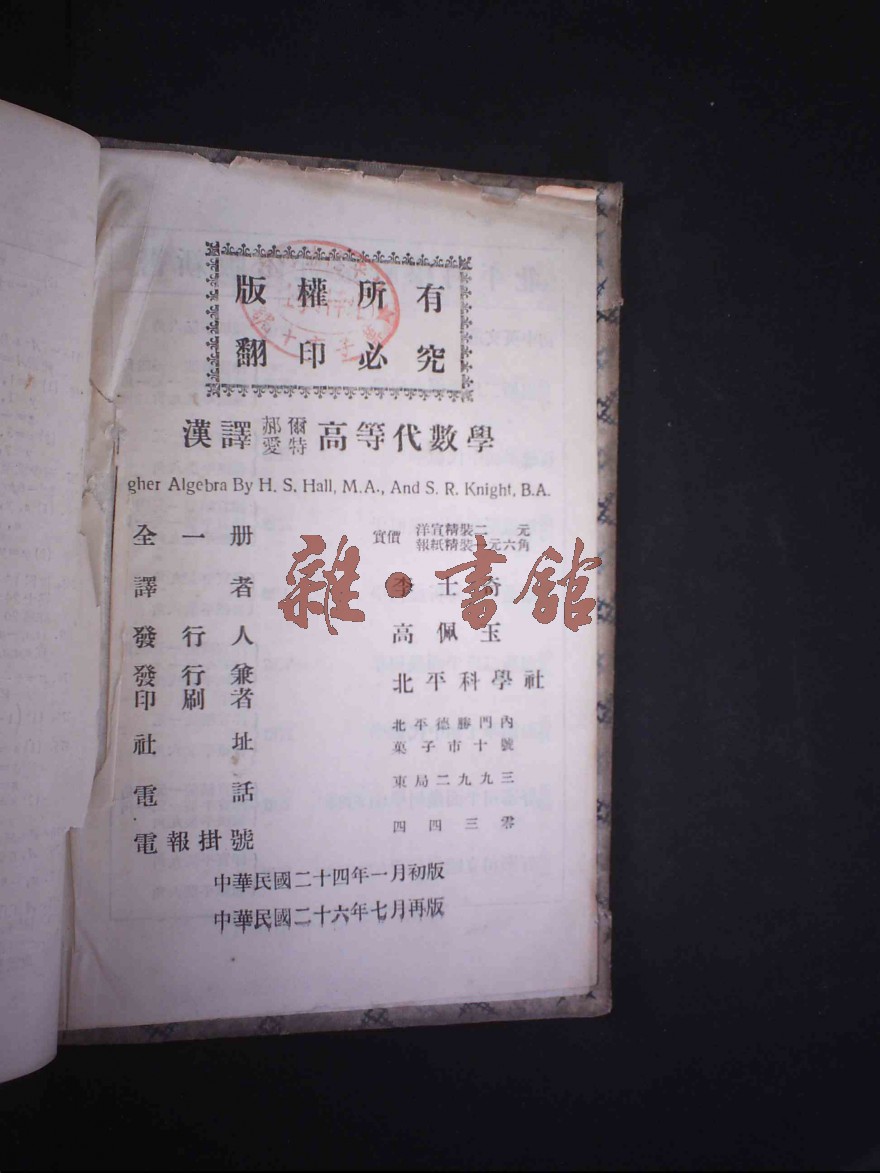 版權所有
翻印必究
漢譯郝爾愛特高等代數學
gher Algebra By H. S. Hall, M.A., And S. R. Knight, B.A.
全一册 實價 洋宣精裝二元
報紙精裝一元六角
譯者 李士奇
發行人 高佩玉
發行兼印刷者 北平科學社
社址 北平德勝門內
菓子市十號
電話 東局二九九三
電報掛號 四四三零
中華民國二十四年一月初版
中華民國二十六年七月再版
雜·書館